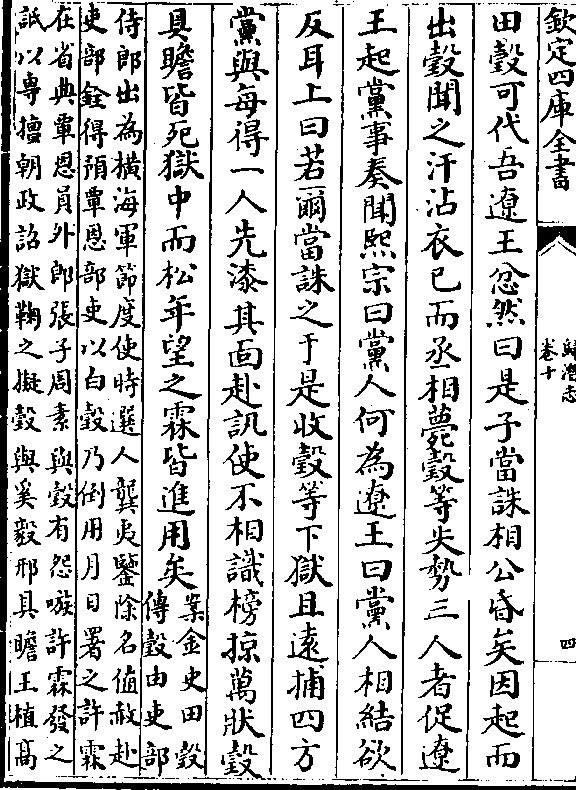 欽定四庫全書
歸潛志
卷十
四
田瑴可代吾遼王忿然曰是子當誅相公昏矣因起而
出瑴聞之汗沾衣已而丞相薨瑴等失勢三人者促遼
王起黨事奏聞熙宗曰黨人何為遼王曰黨人相結欲
反耳上曰若爾當誅之于是收瑴等下獄且遠捕四方
黨與每得一人先漆其面赴訊使不相識榜掠萬狀瑴
具瞻皆死獄中而松年望之霖皆進用矣
案金史田瑴
傳瑴由吏部
侍郎出為橫海軍節度使時選人龔夷鑒除名值赦赴
吏部銓得預覃恩部吏以白瑴乃倒用月日署之許霖
在省典覃恩員外郎張子周素與瑴有怨嗾許霖發之
詆以專擅朝政詔獄鞫之擬瑴與奚毅邢具瞻王植高